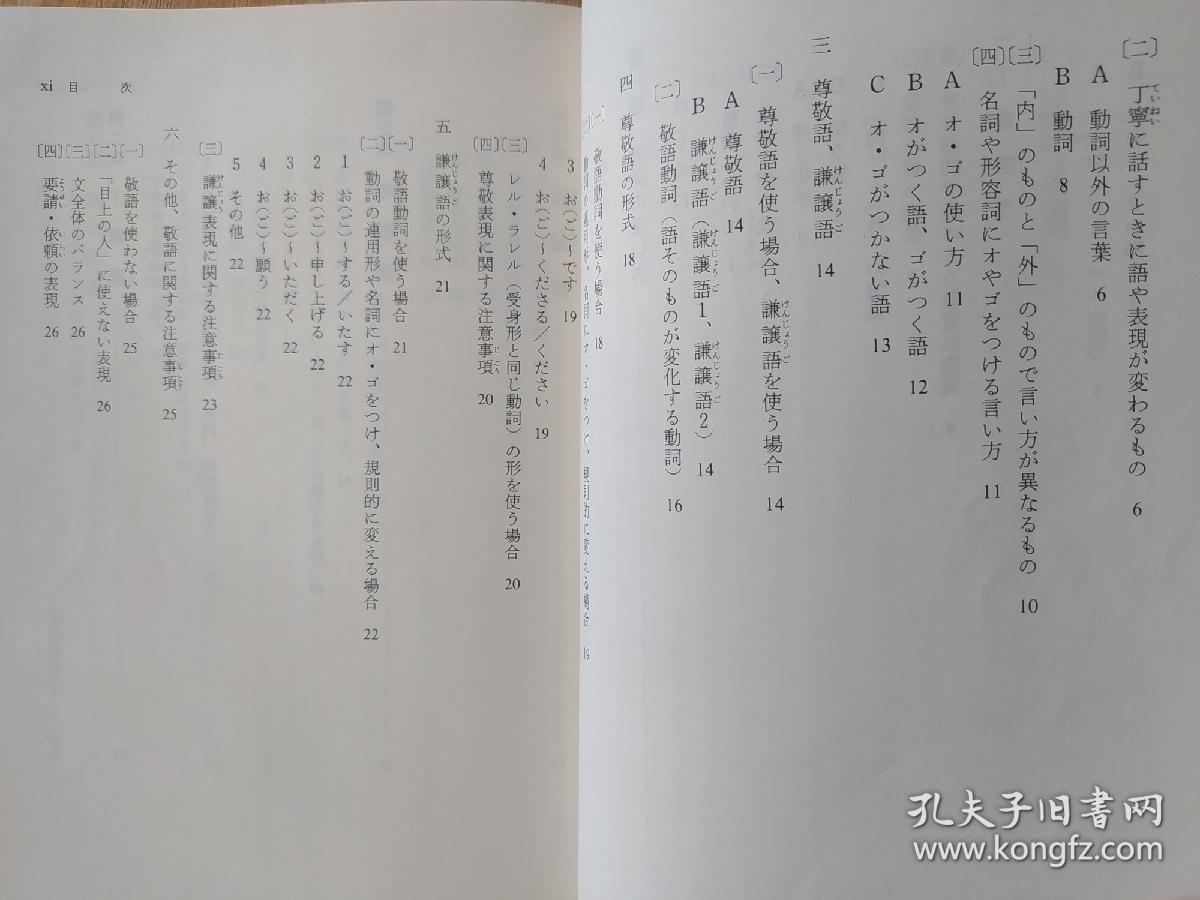 〔二〕 丁寧に話すときに語や表現が変わるもの 6
A 動詞以外の言葉 6
B 動詞 8
〔三〕 「内」のものと「外」のもので言い方が異なるもの 10
〔四〕 名詞や形容詞にオやゴをつける言い方 11
A オ・ゴの使い方 11
B オがつく語、ゴがつく語 12
C オ・ゴがつかない語 13
三 尊敬語、謙譲語 14
〔一〕 尊敬語を使う場合、謙譲語を使う場合 14
A 尊敬語 14
B 謙譲語(謙譲語1、謙譲語2) 14
〔二〕 敬語動詞(語そのものが変化する動詞) 16
四 尊敬語の形式 18
〔一〕 敬語動詞を使う場合 18
オ・ゴをつけ、規則的に変える場合 19
3 お(ご)~です 19
4 お(ご)~くださる/ください 19
〔三〕 レル・ラレル(受身形と同じ動詞)の形を使う場合 20
〔四〕 尊敬表現に関する注意事項 20
五 謙譲語の形式 21
〔一〕 敬語動詞を使う場合 21
〔二〕 動詞の連用形や名詞にオ・ゴをつけ、規則的に変える場合 22
1 お(ご)~する/いたす 22
2 お(ご)~申し上げる 22
3 お(ご)~いただく 22
4 お(ご)~願う 22
5 その他 22
〔三〕 謙譲表現に関する注意事項 23
六 その他、敬語に関する注意事項 25
〔一〕 敬語を使わない場合 25
〔二〕 「目上の人」に使えない表現 26
〔三〕 文全体のバランス 26
〔四〕 要請・依頼の表現 26
xi 目次
孔夫子旧书网
www.kongfz.com